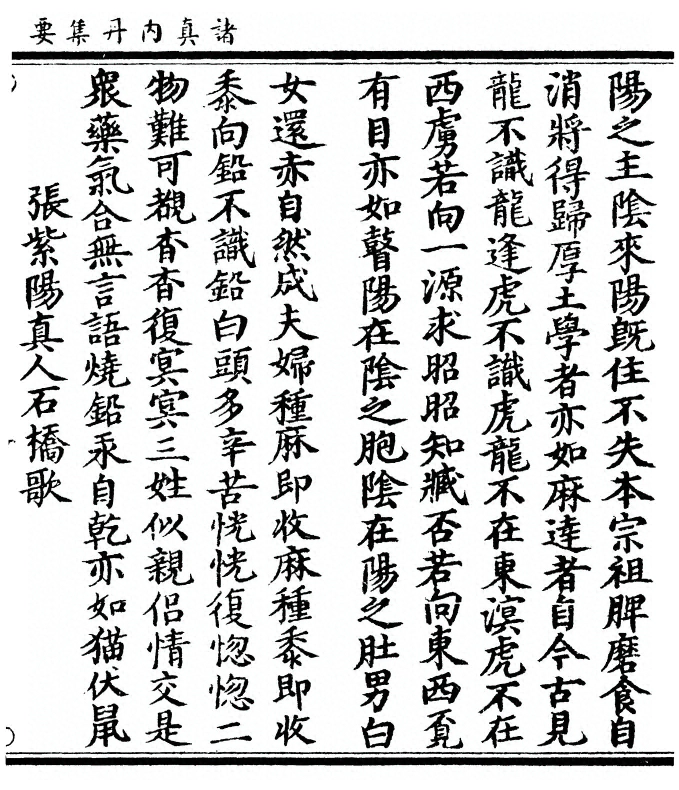 諸真內丹集要
陽之主陰來陽既住不失本宗祖脾磨食自
消將得歸厚土學者亦如麻達者自今古見
龍不識龍逢虎不識虎龍不在東溟虎不在
西虜若向一源求昭昭知臧否若向東西覔
有目亦如瞽陽在陰之胞陰在陽之肚男白
女還赤自然成夫婦種麻即收麻種黍即收
黍向鉛不識鉛白頭多辛苦恍恍復惚惚二
物難可覩杳杳復冥冥三姓似親侣情交是
衆藥氣合無言語燒鉛汞自乾亦如猫伏鼠
張紫陽真人石橋歌